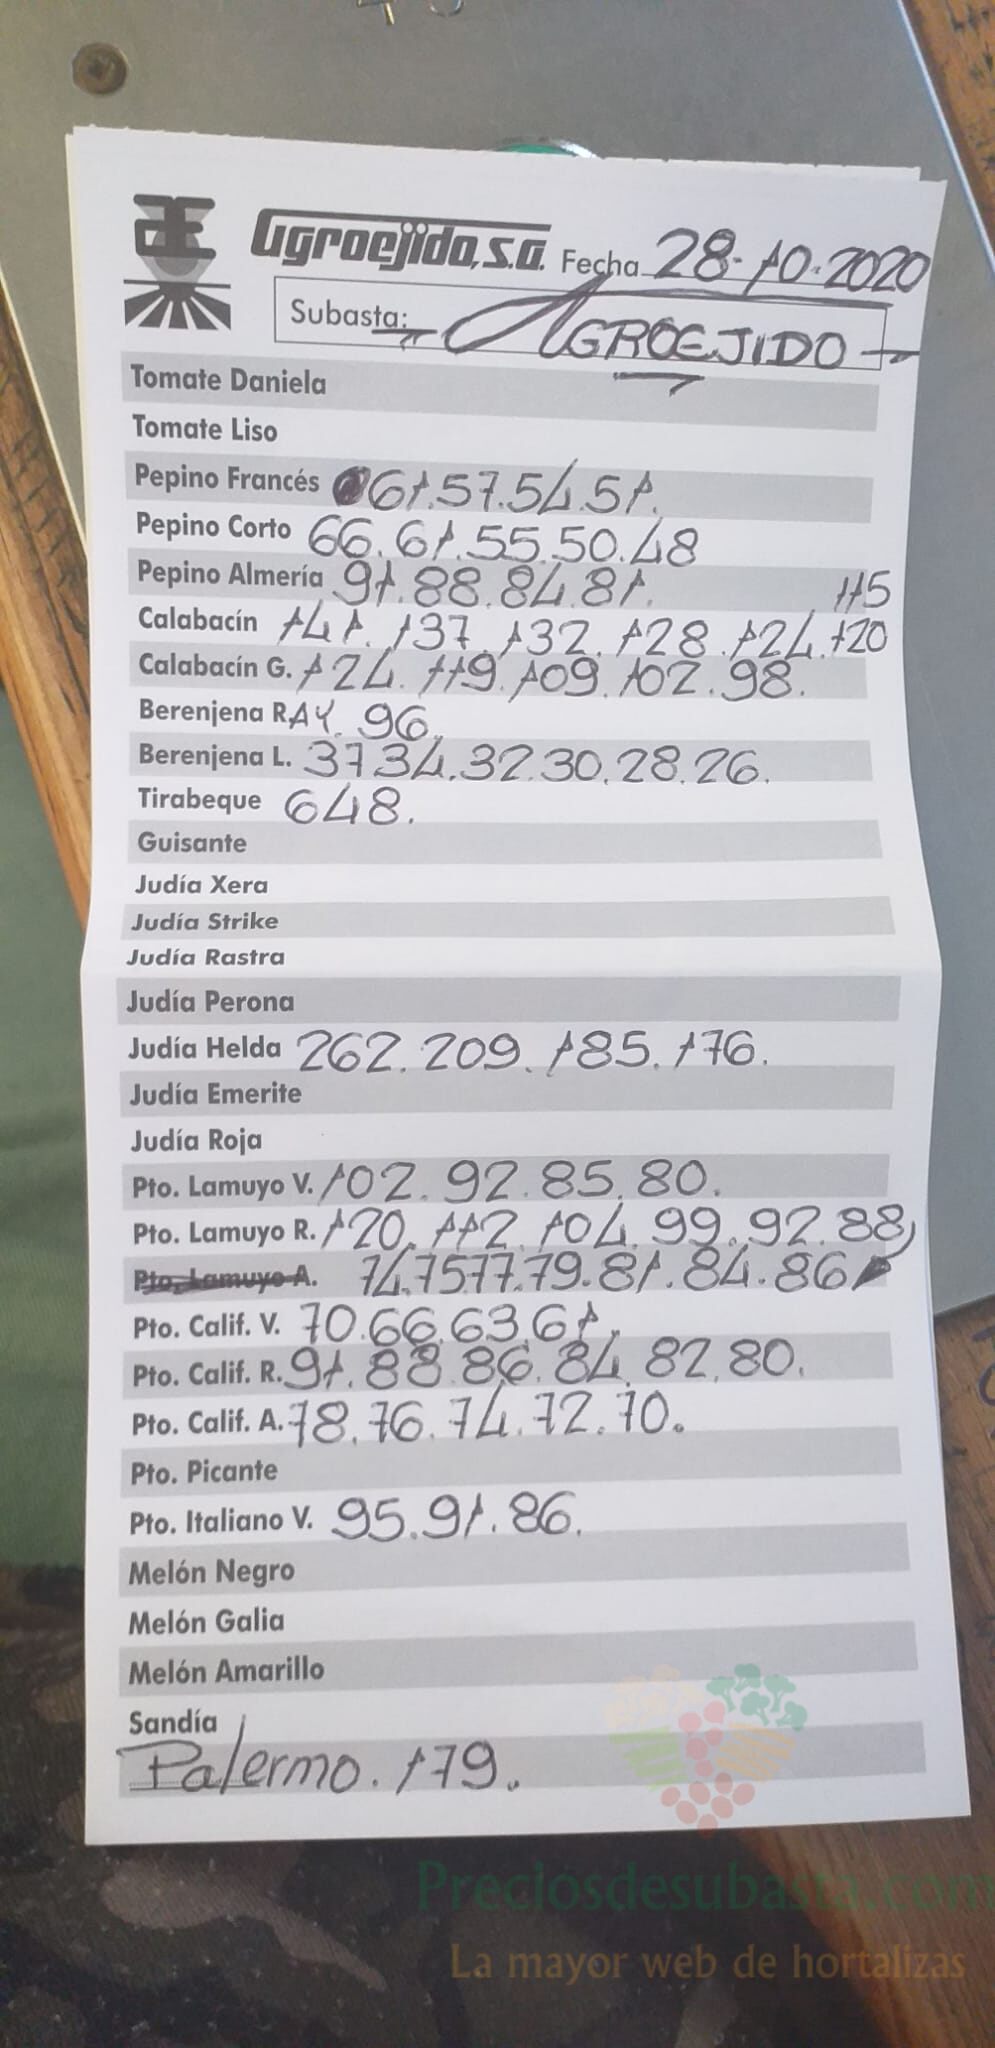 Agroejido, S.A. Fecha 28-10-2020
Subasta: AGROEJIDO
Tomate Daniela
Tomate Liso
Pepino Francés 61.57.54.51.
Pepino Corto 66.61.55.50.48
Pepino Almería 91.88.84.81. 115
Calabacín 141.137.132.128.124.120
Calabacín G. 124.119.109.102.98.
Berenjena RAY. 96.
Berenjena L. 37 34.32.30.28.26.
Tirabeque 648.
Guisante
Judía Xera
Judía Strike
Judía Rastra
Judía Perona
Judía Helda 262.209.185.176.
Judía Emerite
Judía Roja
Pto. Lamuyo V. 102.92.85.80.
Pto. Lamuyo R. 120.112.104.99.92.88
Pto. Lamuyo A. 74.75.77.79.81.84.86
Pto. Calif. V. 70.66.63.61.
Pto. Calif. R. 91.88.86.84.82.80.
Pto. Calif. A. 78.76.74.72.70.
Pto. Picante
Pto. Italiano V. 95.91.86.
Melón Negro
Melón Galia
Melón Amarillo
Sandía
Palermo. 179.
Preciosdesubasta.com
La mayor web de hortalizas